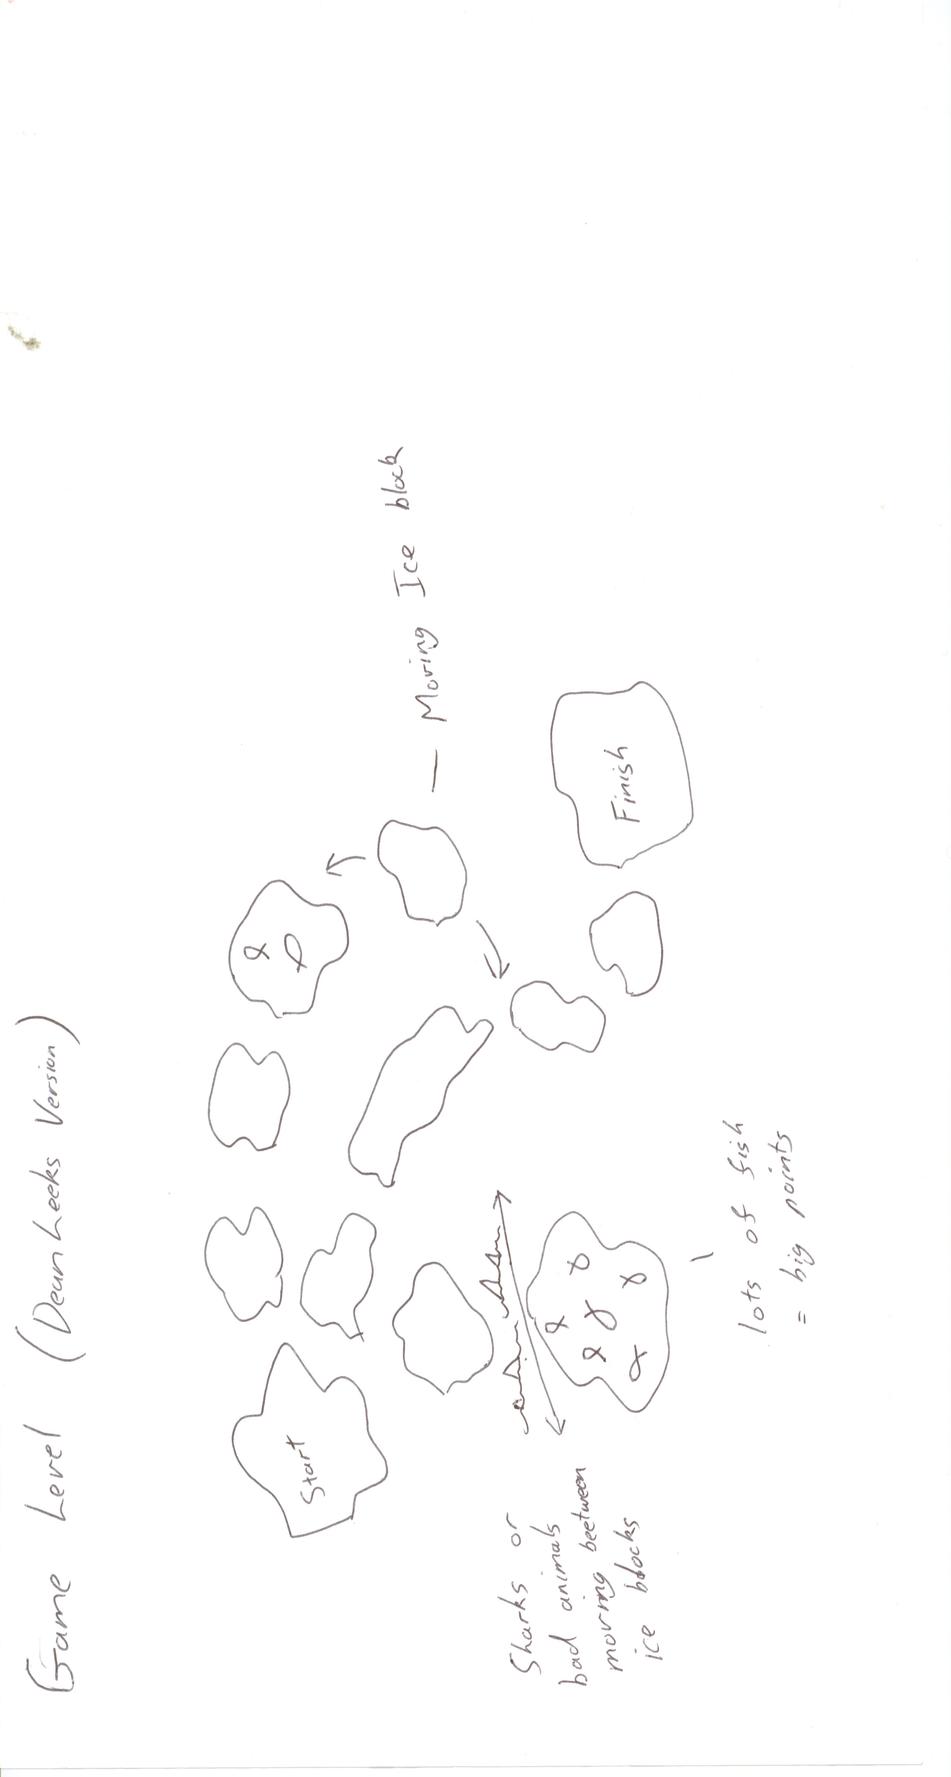 Game Level (Dean Leeks Version)
Start
Moving Ice block
Finish
Sharks or
bad animals
moving beetween
ice blocks
lots of fish
= big points